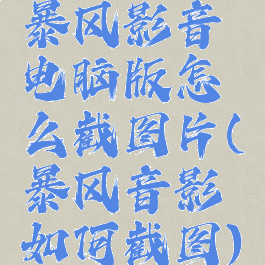 暴风影音
电脑版怎
么截图片(
暴风音影
如何截图)